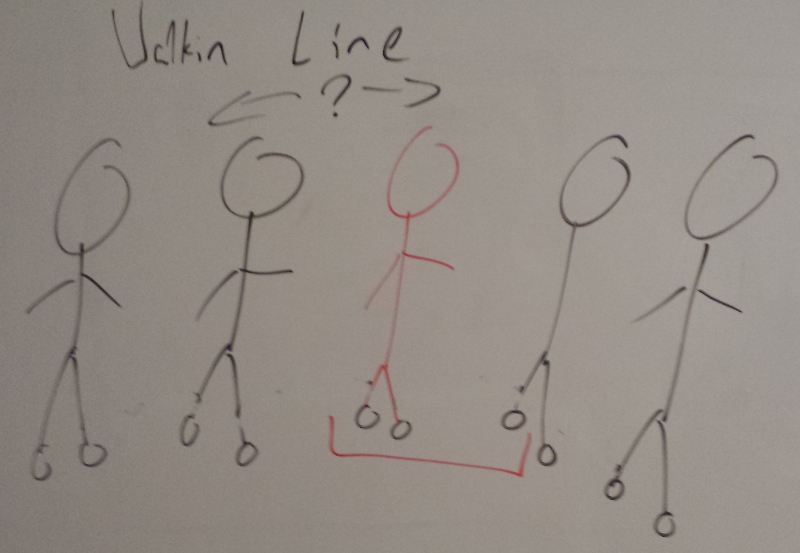 Walkin Line
?